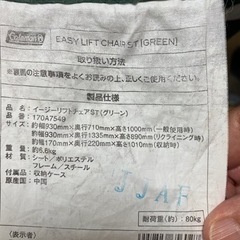 Coleman
EASY LIFT CHAIR ST [GREEN]
取り扱い方法
※裏面の注意事項をよくお読みの上、正しくご使用ください。
製品仕様
品名：イージーリフトチェアST（グリーン）
品番：170A7549
寸法：約幅930mm×奥行710mm×高さ1000mm（一般使用時）
約幅930mm×奥行930mm×高さ890mm（リクライニング時）
約幅170mm×奥行220mm×高さ1010mm（収納時）
重量：約5.6kg
材質：シート／ポリエステル
フレーム／スチール
付属品：収納ケース
原産国：中国
JJAF
耐荷重（約）：80kg